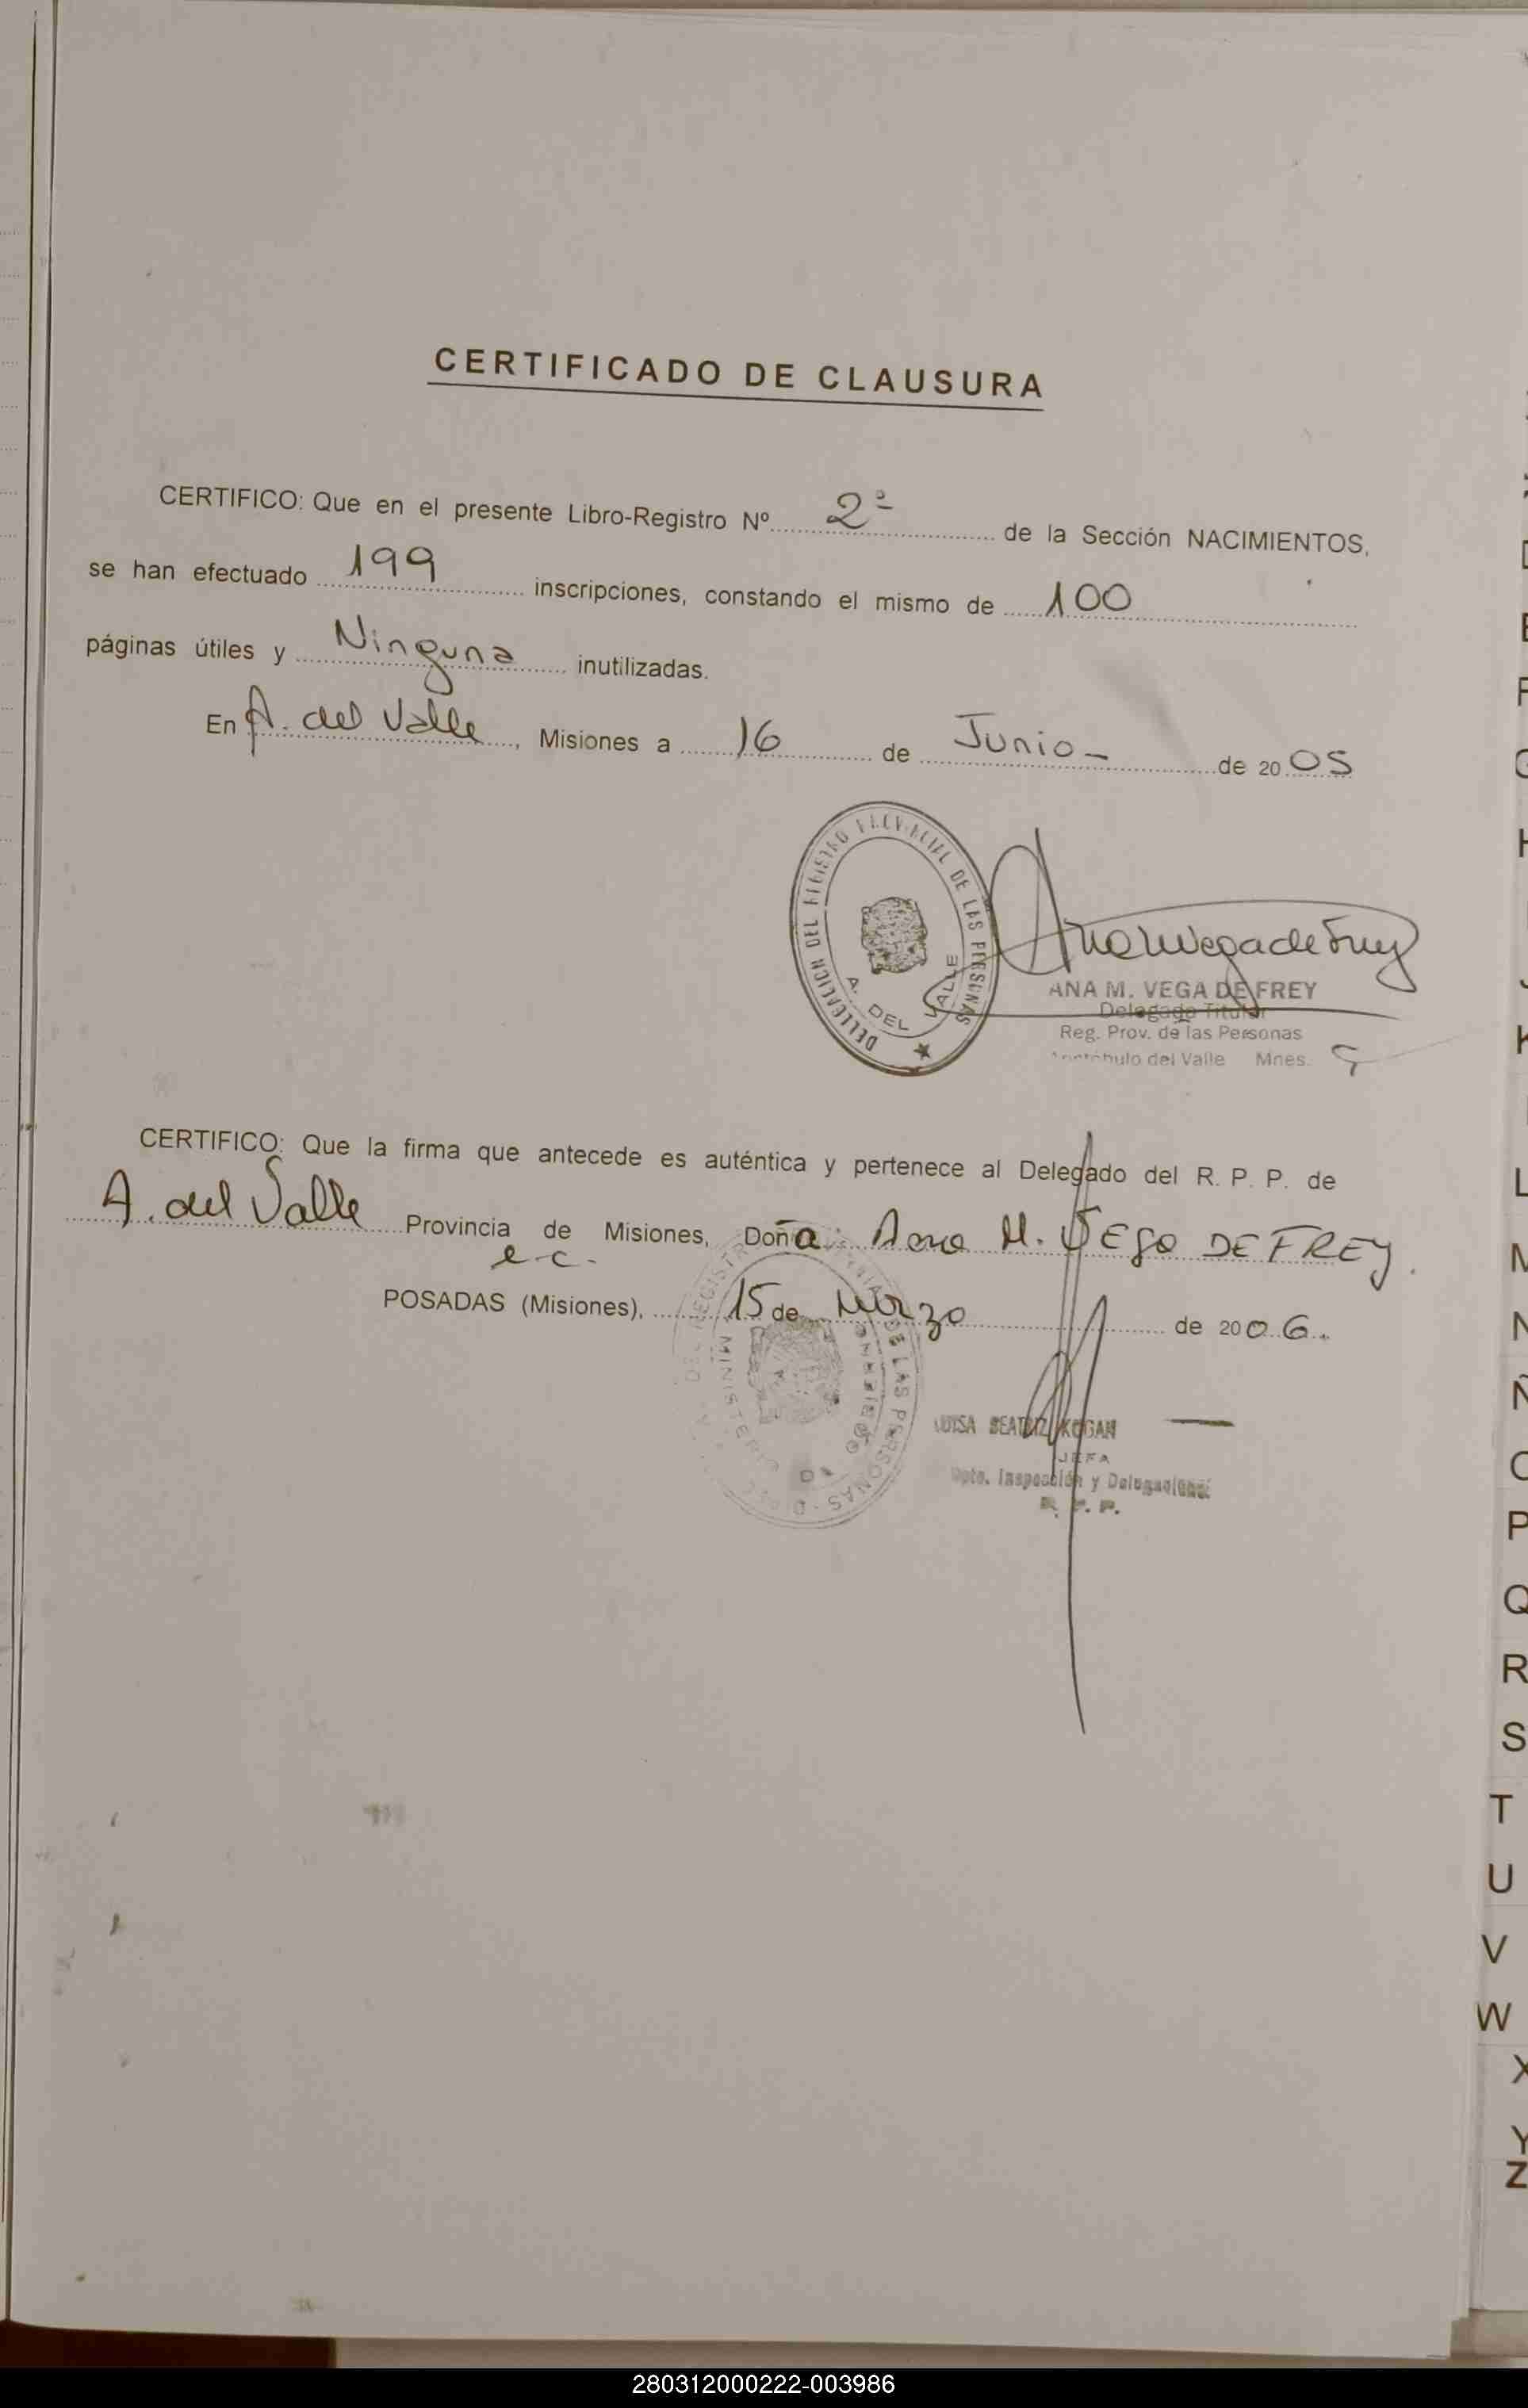 CERTIFICADO DE CLAUSURA
CERTIFICO: Que en el presente Libro-Registro Nº 2º de la Sección NACIMIENTOS,
se han efectuado 199 inscripciones, constando el mismo de 100
páginas útiles y Ninguna inutilizadas.
En A. del Valle, Misiones a 16 de Junio de 2005
DELEGACION DEL REGISTRO PROVINCIAL DE LAS PERSONAS
A. DEL VALLE
Ana M Vega de Frey
ANA M. VEGA DE FREY
Delegado Titular
Reg. Prov. de las Personas
del Valle Mnes.
CERTIFICO: Que la firma que antecede es auténtica y pertenece al Delegado del R. P. P. de
A. del Valle Provincia de Misiones, Doña Ana M. VEGA DE FREY.
e.c.
POSADAS (Misiones), 15 de Marzo de 2006.
DE LAS PERSONAS
MINISTERIO DE GOBIERNO
LUISA BEATRIZ KOGAN
JEFA
Dpto. Inspección y Delegaciones
R. P. P.
F
H
K
L
M
N
Ñ
O
P
Q
R
S
T
U
V
W
X
Y
Z
280312000222-003986